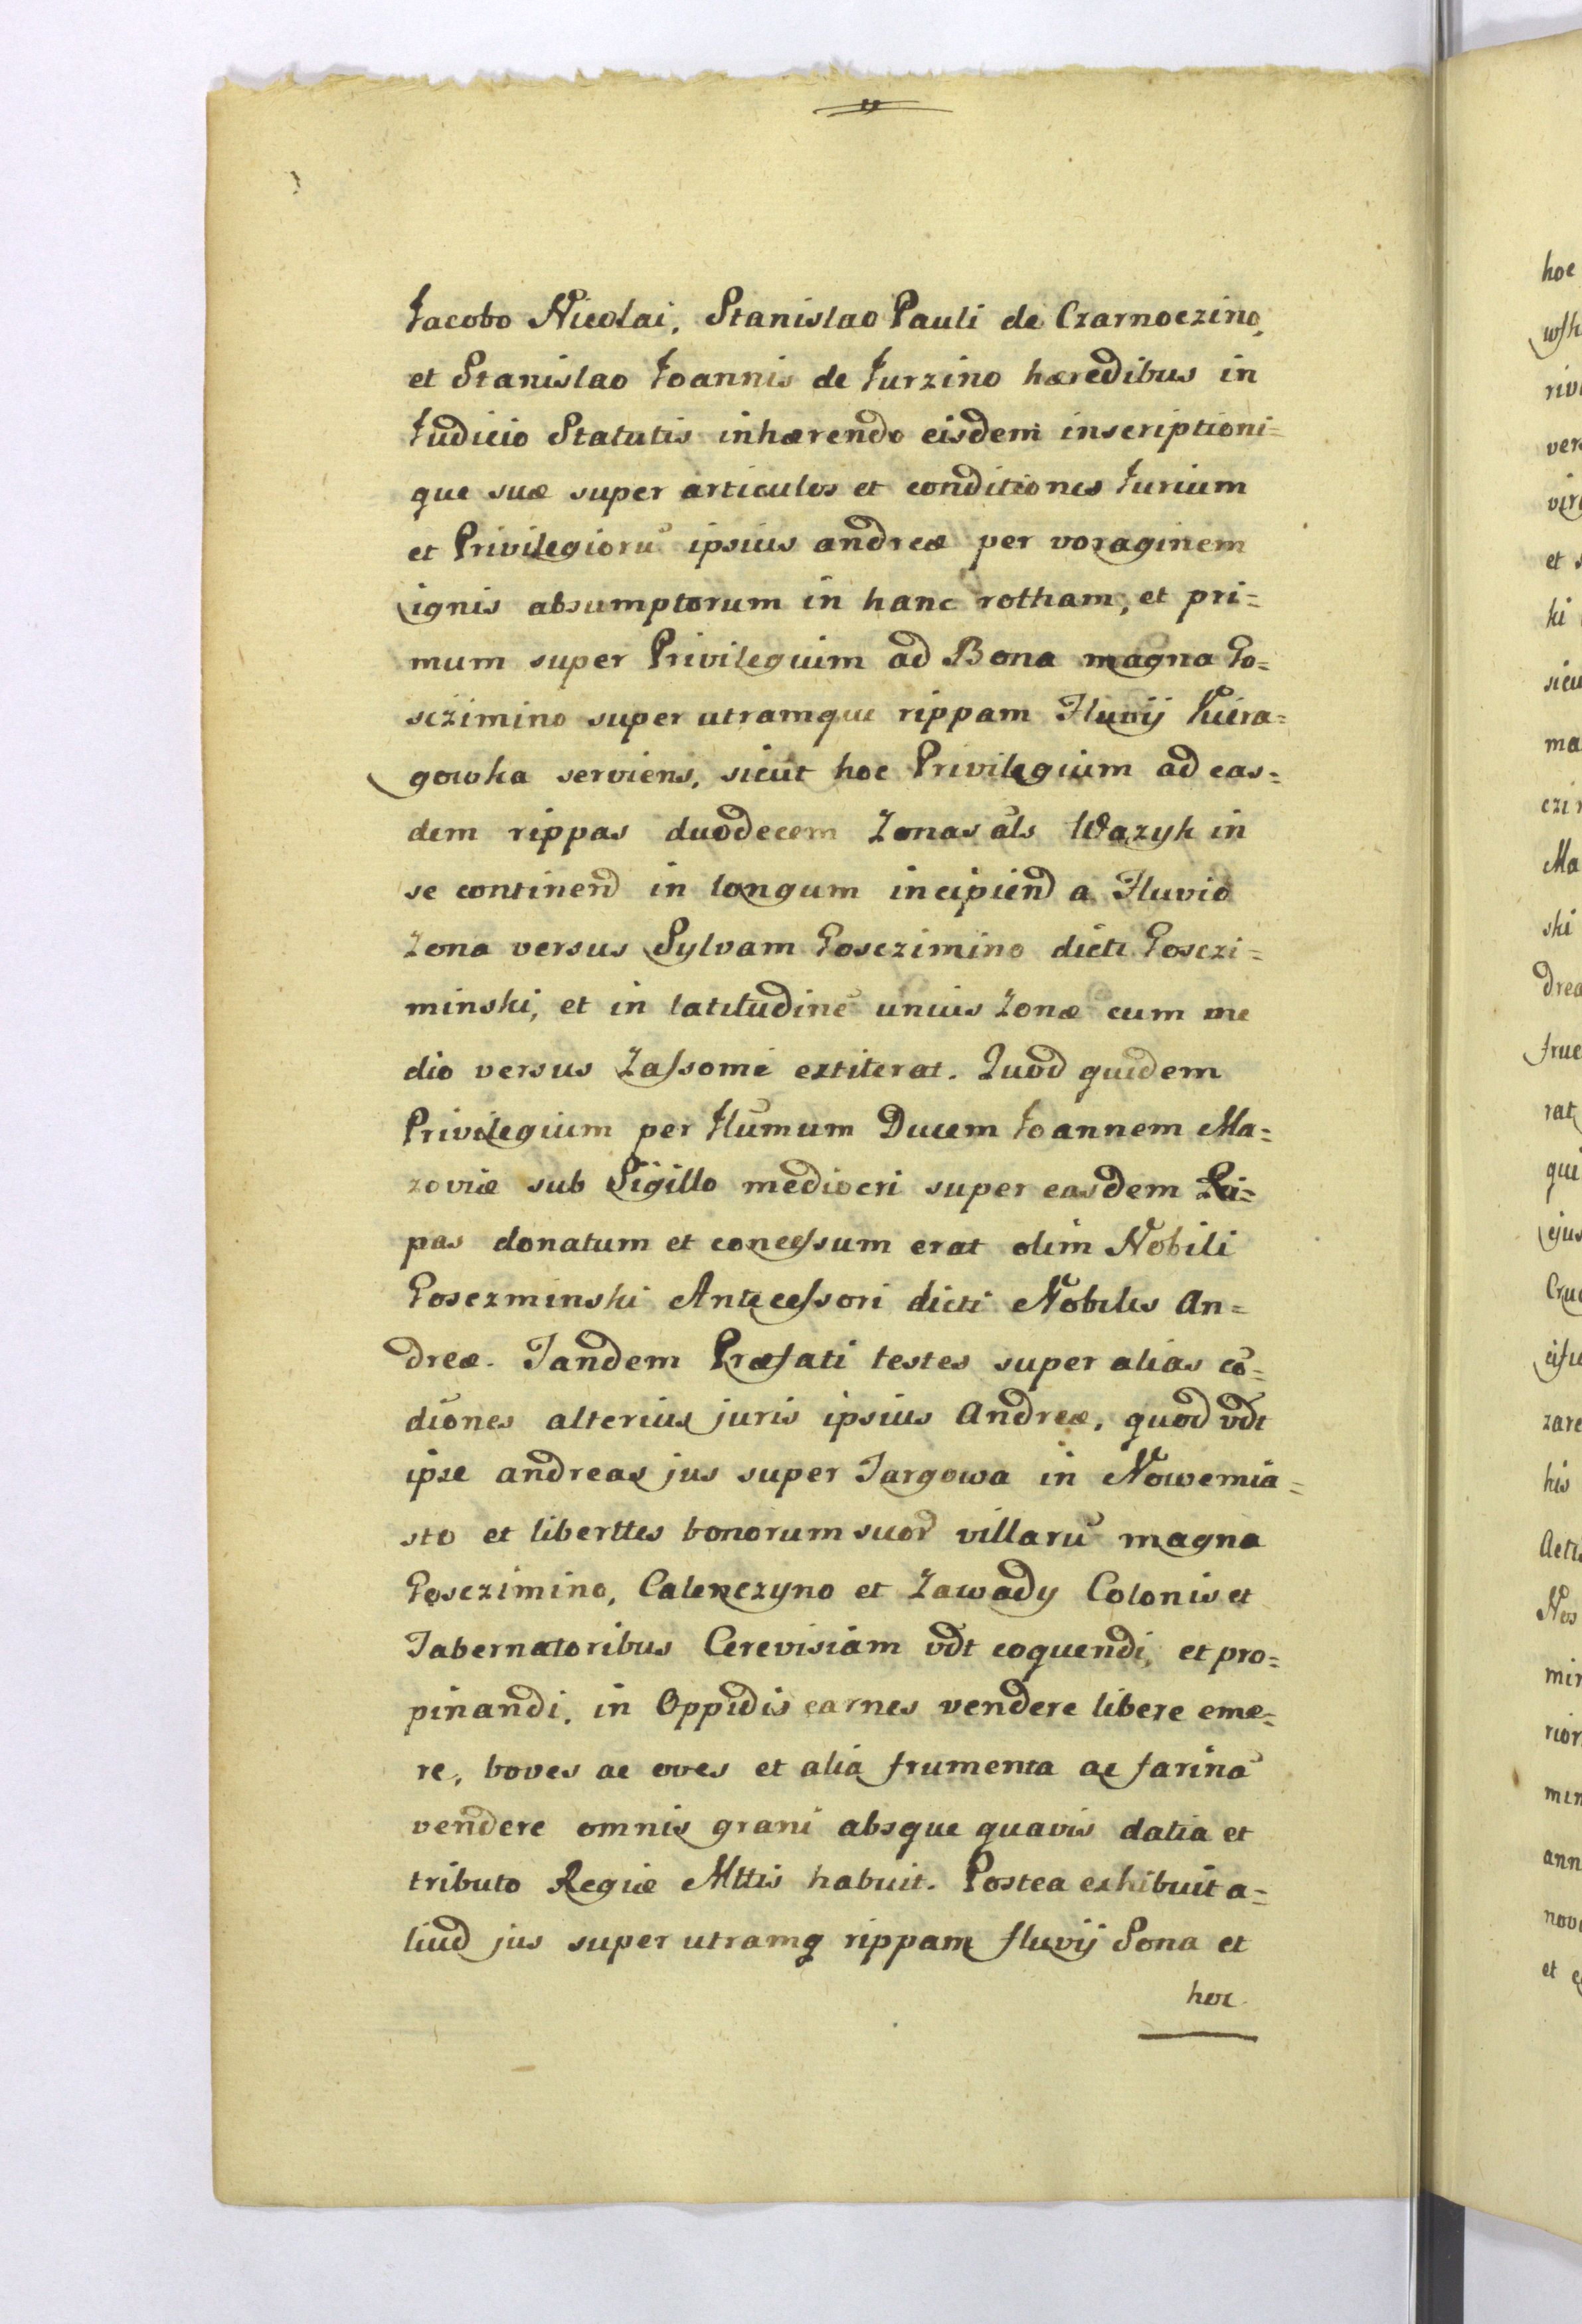 Jacobo Nicolai, Stanislao Pauli de Czarnoczino,
et Stanislao Joannis de Jurzino hæredibus in
Judicio Statutis inhærendo eisdem inscriptioni=
que suæ super articulos et conditiones Jurium
et Privilegiorũ ipsius andreæ per voraginem
ignis absumptorum in hanc rotham, et pri=
mum super Privilegium ad Bona magna Go=
sczimino super utramque rippam Fluvij Kiera=
gowka serviens, sicut hoc Privilegium ad eas=
dem rippas duodecem Zonas als Wazyk in
se continend in longum incipiend a Fluvio
Zona versus Sylvam Gosczimino dicti Gosczi=
minski, et in latitudinẽ unius Zonæ cum me
dio versus Zaſsome extiterat. Quod quidem
Privilegium per Illũmum Ducem Joannem Ma=
zoviæ sub Sigillo mediocri super easdem Ri=
pas donatum et conceſsum erat olim Nobili
Gosczminski Anteceſsori dicti Nobilis An=
dreæ. Tandem Præfati testes super alias cõ=
diones alterius juris ipsius Andreæ, quod vdt
ipse andreas jus super Targowa in Nowemia=
sto et liberttes bonorum suor villarũ magna
Gosczimino, Calenczyno et Zawady Colonis et
Tabernatoribus Cerevisiam vdt coquendi, et pro=
pinandi, in Oppidis carnes vendere libere eme=
re, boves ac oves et alia frumenta ac farinã
vendere omnis grani absque quavis datia et
tributo Regiæ Mttis habuit. Postea exhibuit a=
liud jus super utramq rippam fluvij Sona et
hoc